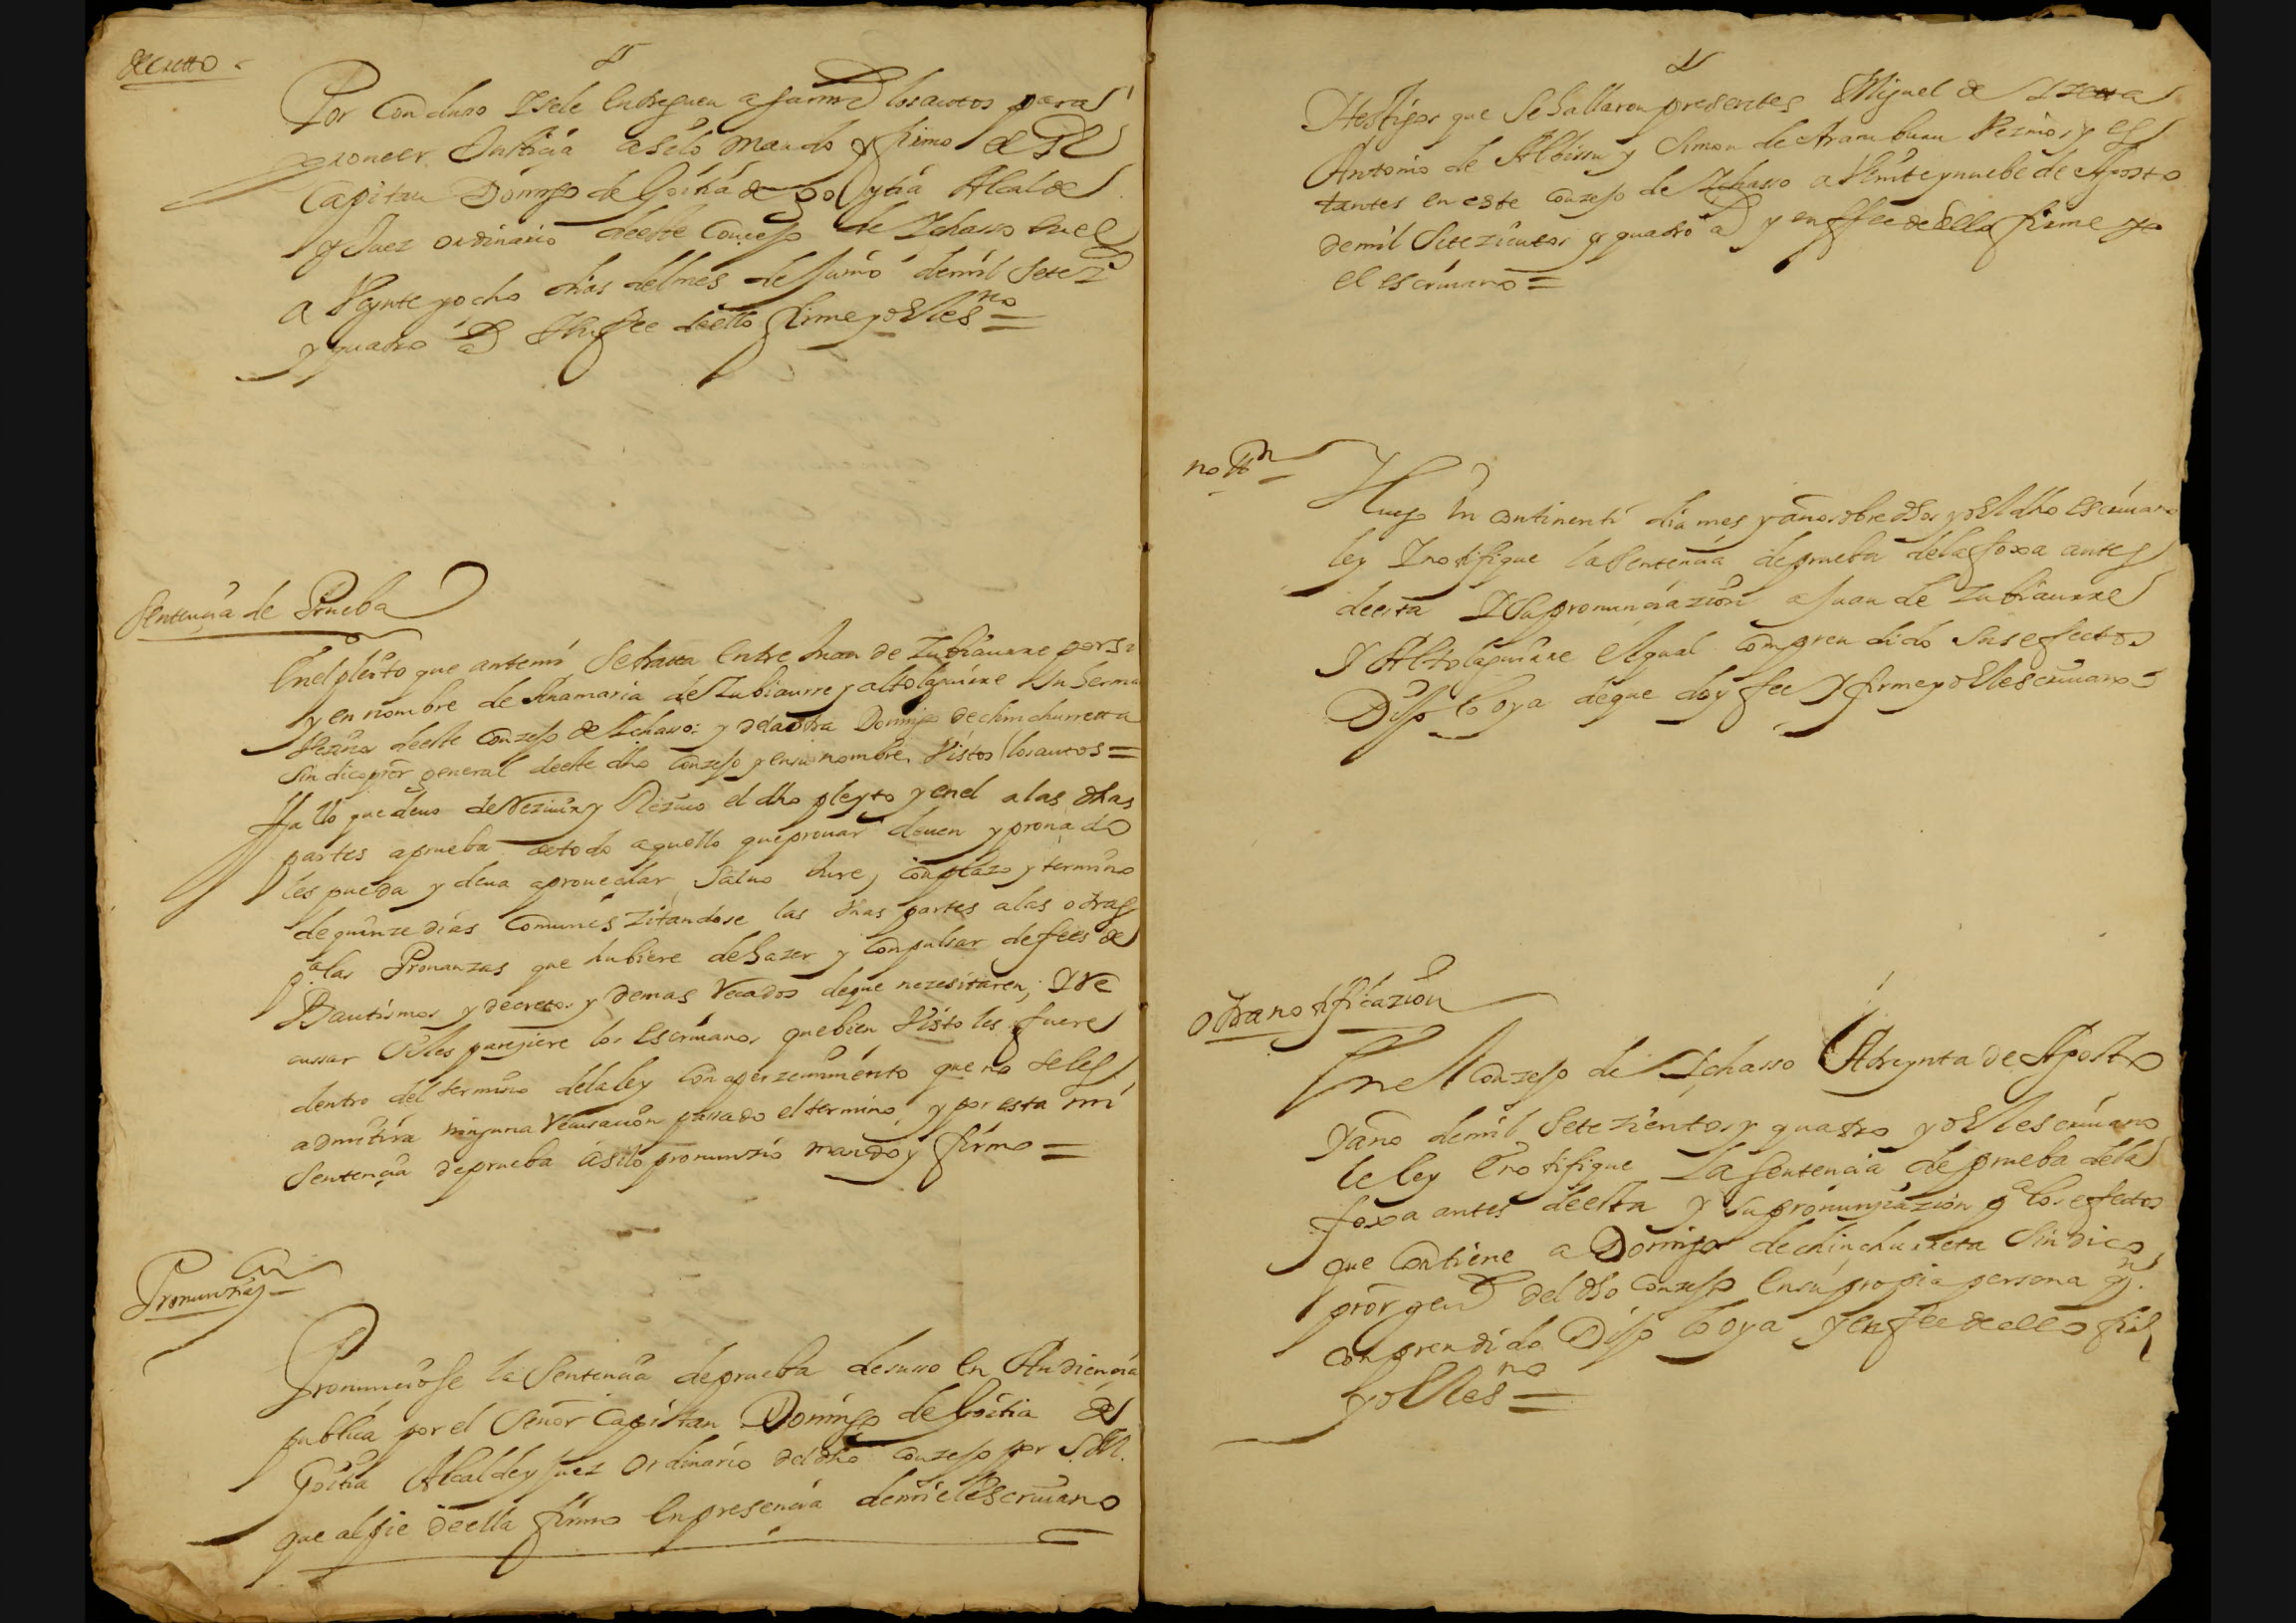 decretto
Por concluso y se le entreguen a su mrd los autos para
proueer Justicia asi lo mando y firmo el Sr
Capitan Domingo de Goitia Alcalde
y Juez ordinario deeste Concejo de Ichasso en el
a Veynte y ocho dias del mes de Junio de mil setez
y quatro a y en fee deello firme yo el es.no =
Sentencia de Prueba
En el pleito que antemi se tratta entre Juan de Zubiaurre por si
y en nombre de Anamaria de Zubiaurre y altolaguirre su herma
Vezinos deeste conzejo de Ichasso: y de la otra Domingo de chinchurretta
Sindico pror general deeste dho conzejo y en su nombre, Vistos los autos =
Hallo que deuo de Rezeuir y Rezeuo el dho pleyto y en el a las dhas
partes aprueba de todo aquello que prouar deuen y prouado
les pueda y deua aprouechar saluo Jure, con plazo y termino
de quinze dias comunes zitandose las vnas partes a las otras
p.a las Prouanzas que hubiere de hazer y conpulsar de fees de
Bautismos y decretos y demas recados de que nezesitaren; y re
cussar si les pareziere los escriuanos que bien Visto les fuere
dentro del termino de la ley con aperzeuimiento que no se les
admitira ninguna recusacion passado el termino, y por esta mi
Sentencia de prueba asi lo pronunzio mando y firmo =
Pronunziaz.on
Pronunciose la Sentencia de prueba desuso en Audiencia
publica por el Señor Capitan Domingo de Goitia
Goitia Alcalde y Juez ordinario del dho conzejo por S.M.
que al pie deella firmo en presencia de mi el escriuano
Y testigos que se hallaron presentes Miguel de
Antonio de Albissu y Simon de Aramburu Vezinos y es
tantes en este conzejo de Ichasso a Veinte y nuebe de Agosto
de mil Setezientos y quatro a y en ffee de ello firme yo
el escriuano =
nottn
Luego In continenti dia mes y año sobre dhos yo el dho escriuano
ley y notifique la Sentencia de prueba de la foxa antes
deesta y su pronunciazion a Juan de Zubiaurre
y Altolaguirre el qual comprendido sus efectos
Dijo lo oya de que doy fee y firme yo el escriuano =
otra notificazion
En el conzejo de Ichasso A treynta de Agosto
y año de mil Setezientos y quatro yo el escriuano
le ley e notifique la Sentencia de prueba de la
foxa antes deesta y su pronunziazion p.a los efectos
que contiene a Domingo de chinchurreta Sindico
pror genl del dho conzejo en su propia persona qn.
conprendido Dijo lo oya y en fee deello fir
yo el es.no =